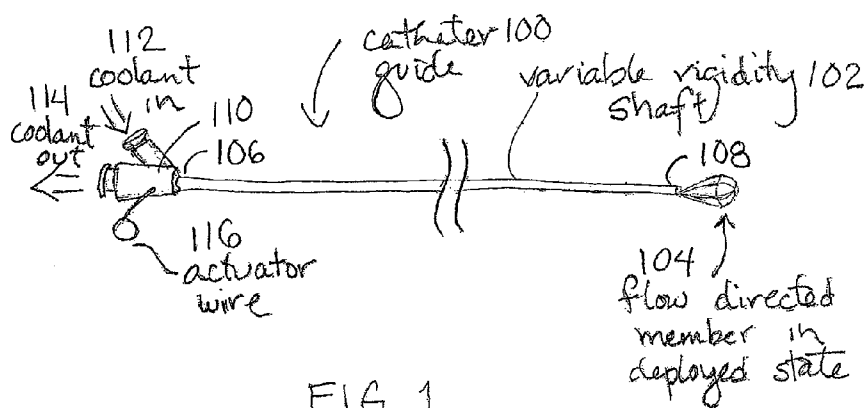 112
coolant
in
114
coolant
out
110
106
catheter 100
guide
variable rigidity 102
shaft
108
116
actuator
wire
104
flow directed
member in
deployed state
FIG. 1